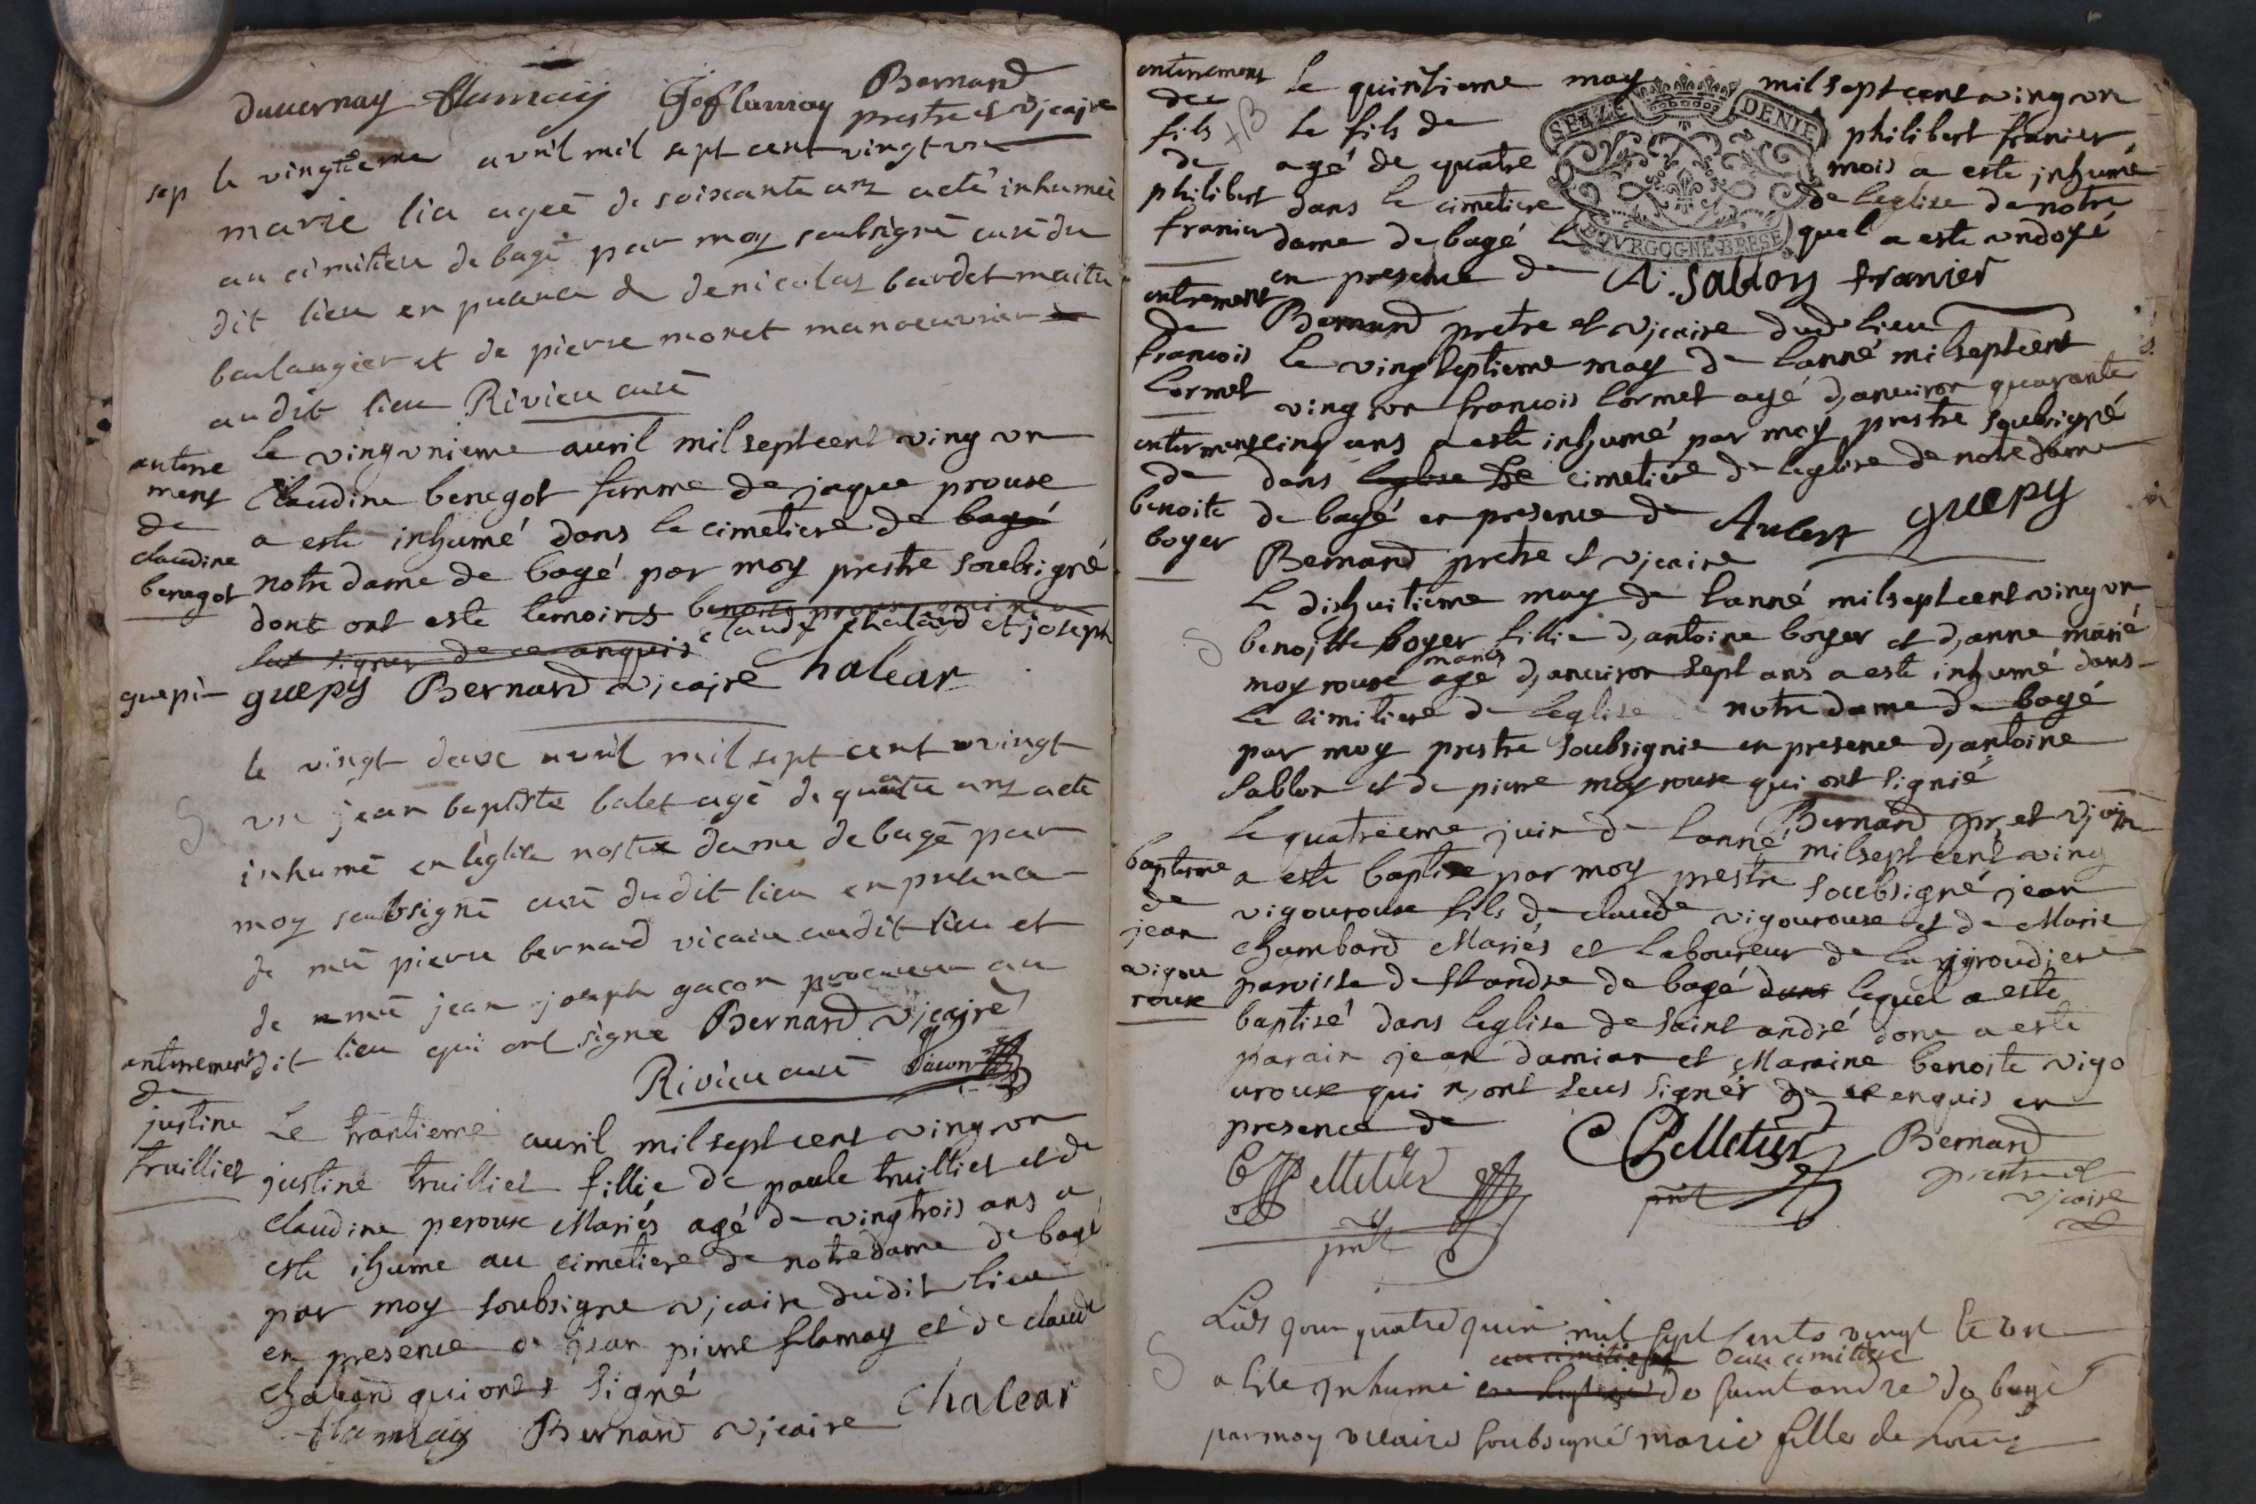 duvernay flamay Jofflamay Bernard
prestre et vjcajre
sep le vingtieme avril mil sept cent vingt un
marie lia ageé de soixante ans a eté inhumeé
au cimitiere de bagé par moy soubsigné curé du
dit lieu en presence de de nicolas bardet maitre
boulangier et de pierre monet manoeuvrier
audit lieu Rivieu curé
anterre
ment
de
claudine
benegot
le vingunieme auril mil septcent ving un
Claudine benegot femme de jaque prouse
a este inhumé dans le cimetiere de bagé
notre dame de bagé par moy prestre soubsigné
dont ont este temoins
claude chaland et joseph
guepi
guepy Bernard vjcajre Chalear
le vingt deux avril mil sept cent vingt
un jean baptiste balet agé de quatre ans a eté
inhumé en leglise nostre dame de bagé par
moy soubsigné curé dudit lieu en presence
de mre pierre bernard vicaire audit lieu et
de mre jean joseph gacon procureur au
dit lieu qui ont signe Bernard vjcajre
Rivieu curé Gacon
anterrement
de
justine
truilliet
Le trantieme auril mil septcent ving un
justine truilliet fillie de paule truilliet et de
claudine perouse Mariés agé de vingtrois ans a
este ihume au cimetiere de notre dame de bagé
par moy soubsigne vjcaire dudit lieu
en presence de jean pierre flamay et de claude
chaland qui ont signé
flamay Bernard vjcaire Chalear
anterrement
des
fils
de
philibert
franier
le quintieme may mil sept cent ving un
le fils de philibert franier
agé de quatre mois a este jnhumé
dans le cimetiere de leglise de notre
dame de bagé lequel a este undoyé
en presence de A. Sablon franier
SEIZE DENIE
BOVRGOGNE BRESE
Bernard pretre et vjcaire dud lieu
anterement
de
francois
Cormet
le vingseptieme may de lanné mil septcent
ving un francois Cormet agé d,anuiron quarante
cinq ans a este inhumé par moy prestre soubsigné
dans leglise de cimetiere de leglise de notre dame
de bagé en presence de Aubert guepy
Bernard pretre et vjcaire
anterment
de
benoite
boyer
Le dixhuitieme may de lanné milseptcent ving un
benojtte boyer fillie d,antoine boyer et d,anne marie
moyroux mariés agé d,anuiron sept ans a este inhumé dans
le cimitiere de leglise de notre dame de bagé
par moy prestre soubsignie en presence d,antoine
sablon et de pierre moyroux qui ont signié
Bernard pr, et vjcaire
baptesme
de
jean
vigou
roux
Le quatrieme juin de lanné milseptcent ving
a este baptise par moy prestre soubsigné jean
vigouroux fils de claude vigouroux et de Marie
chambard Mariés et laboureur de la
paroisse de St andre de bagé lequel a este
baptisé dans leglise de saint andré dont a este
parain jean damian et Maraine benoite vigo
uroux qui n,ont seus signér de ce enquis en
presence de
Pelletier Pelletier Bernard
prestre et
vjcaire
prnt prnt
mil sept cents vingt et un
au cimitiere
a este Inhumé de saint andre de bagé
par moy vicaire soubsigné marie fille de